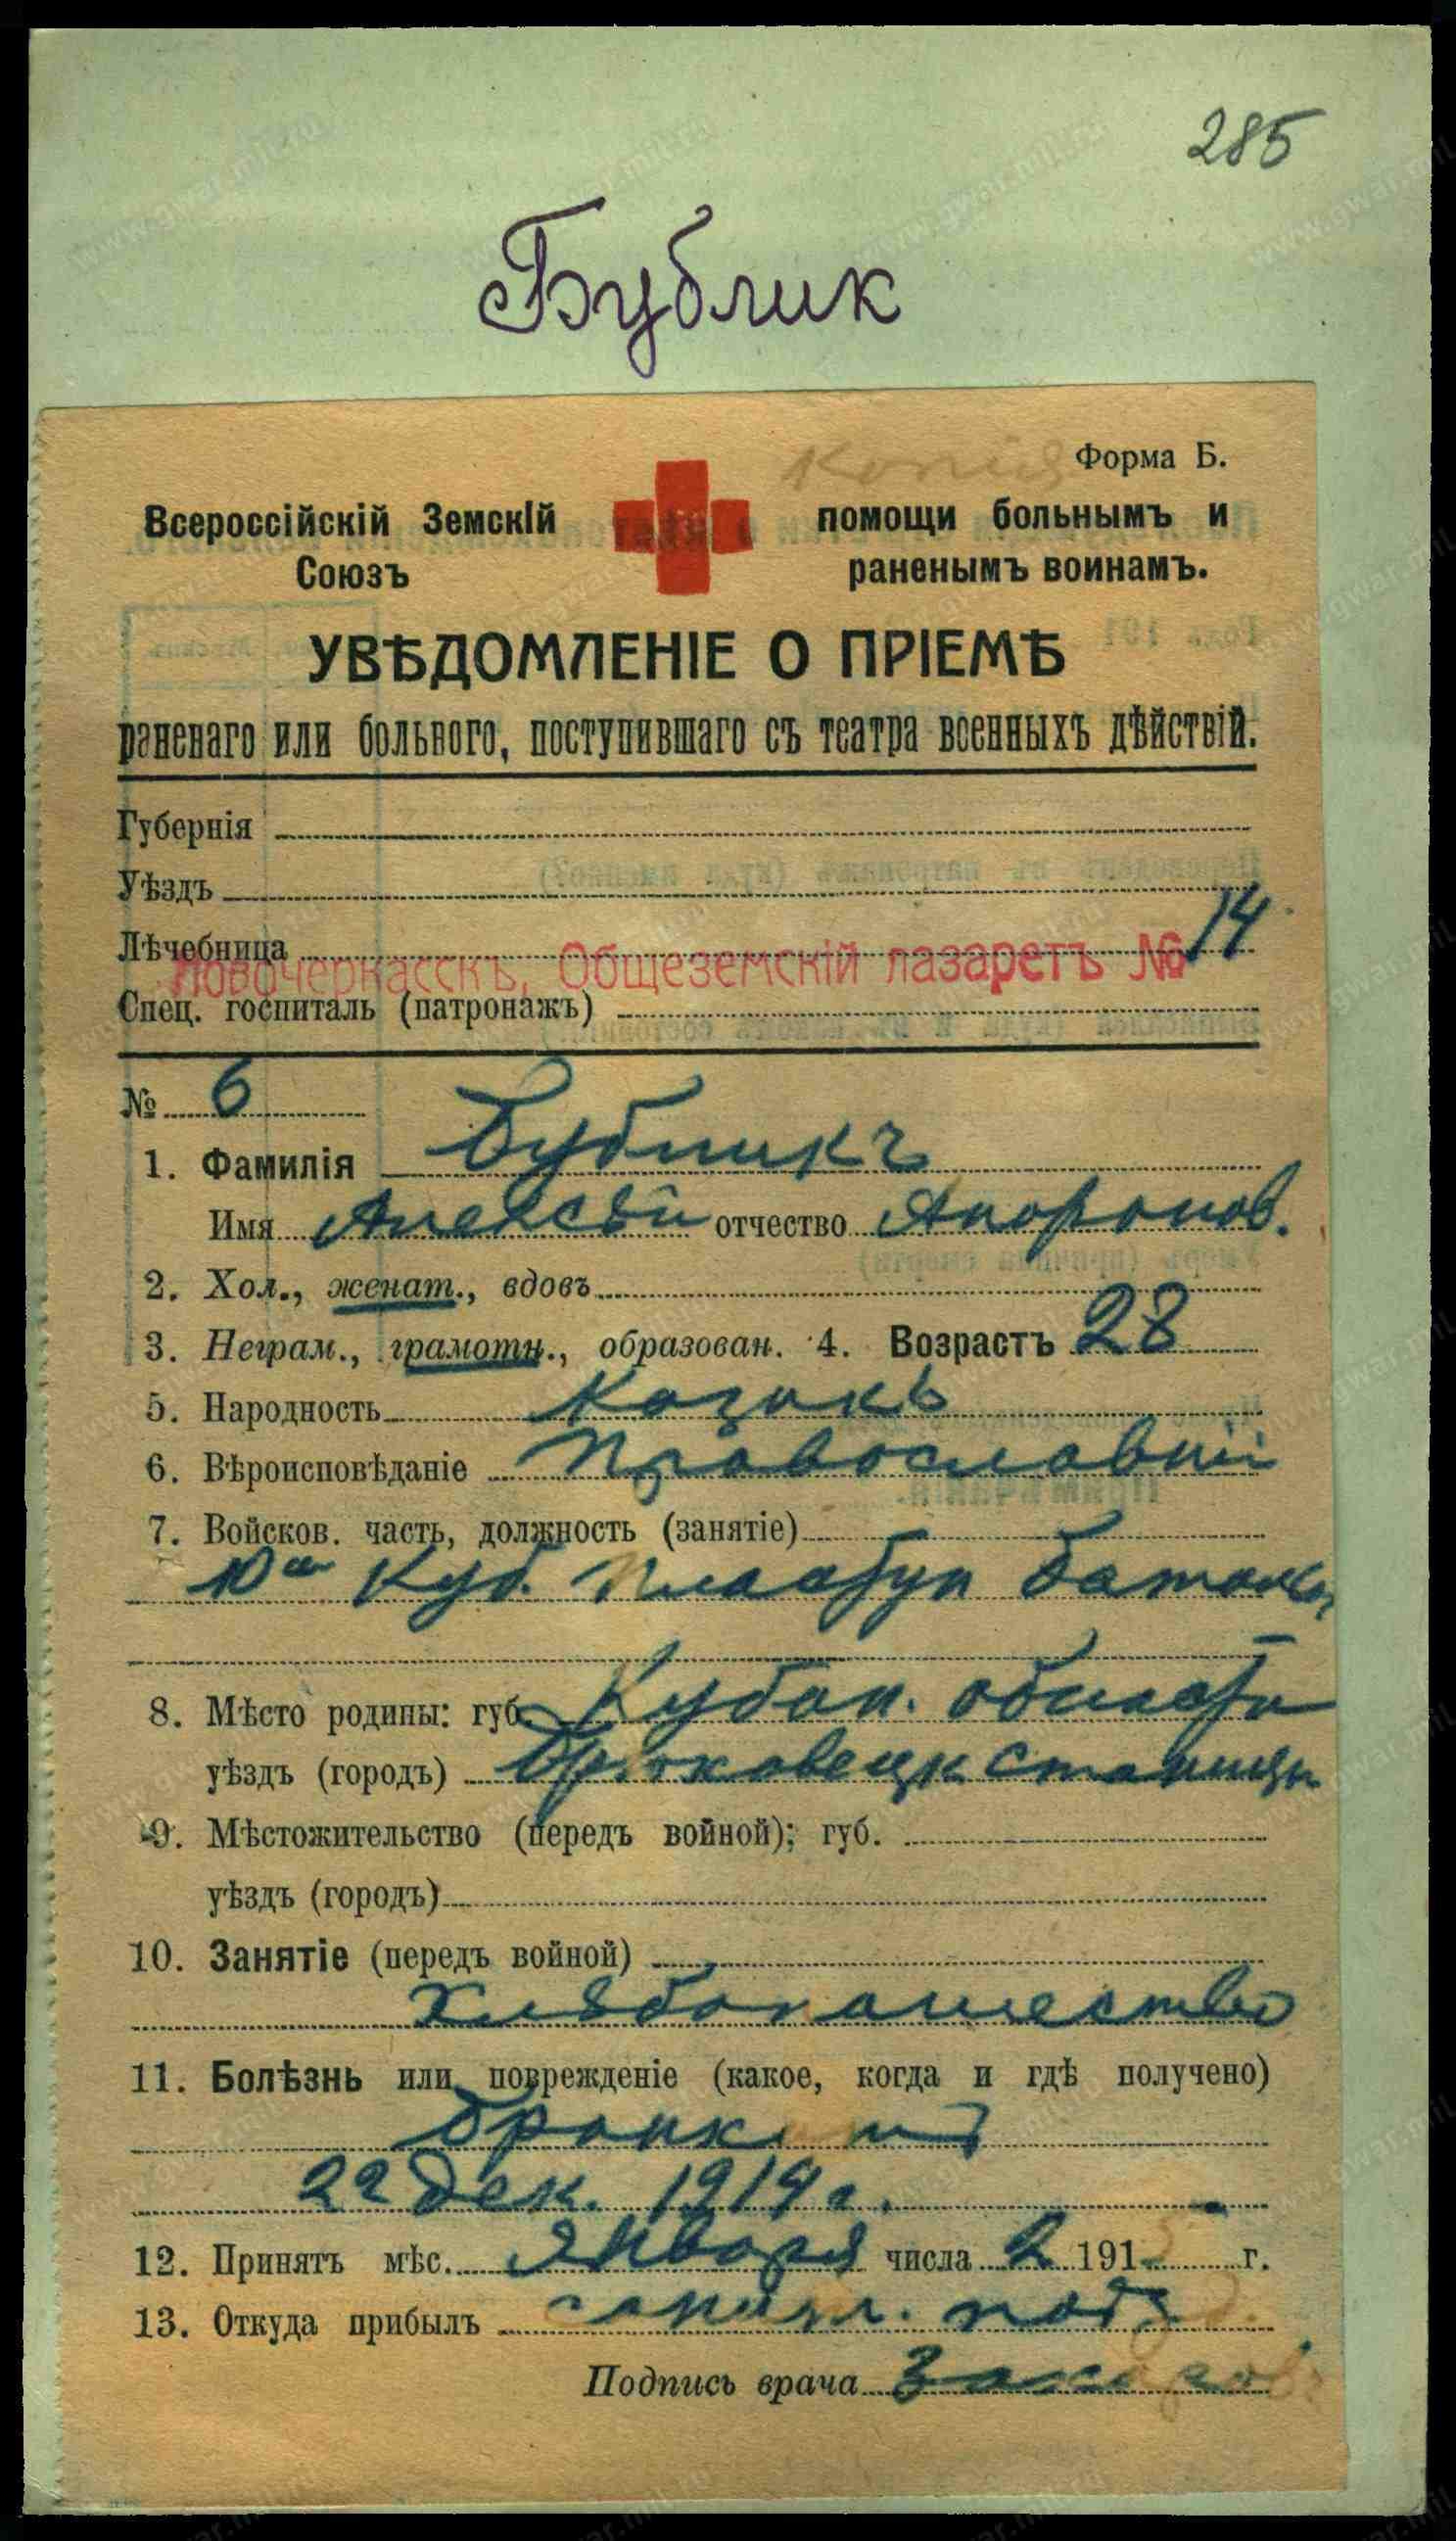 285
Бублик
Копія Форма Б.
Всероссійскій Земскій помощи больнымъ и
Союзъ раненымъ воинамъ.
УВѢДОМЛЕНІЕ О ПРІЕМѢ
раненаго или больного, поступившаго съ театра военныхъ дѣйствій.
Губернія
Уѣздъ
Лѣчебница
Новочеркасскъ, Общеземскій лазаретъ № 14
Спец. госпиталь (патронажъ)
№ 6
1. Фамилія Бубликъ
Имя Алексѣй отчество
2. Хол., женат., вдовъ
3. Неграм., грамотн., образован. 4. Возрастъ 28
5. Народность Козакъ
6. Вѣроисповѣданіе Православній
7. Войсков. часть, должность (занятіе)
10й Куб. Пластун
8. Мѣсто родины: губ. Кубан. области
уѣздъ (городъ) Брюховецк станицы
9. Мѣстожительство (передъ войной); губ.
уѣздъ (городъ)
10. Занятіе (передъ войной)
Хлѣбопашество
11. Болѣзнь или поврежденіе (какое, когда и гдѣ получено)
Бронхитъ
22 дек. 1914 г.
12. Принятъ мѣс. Января числа 2 1915 г.
13. Откуда прибылъ
Подпись врача